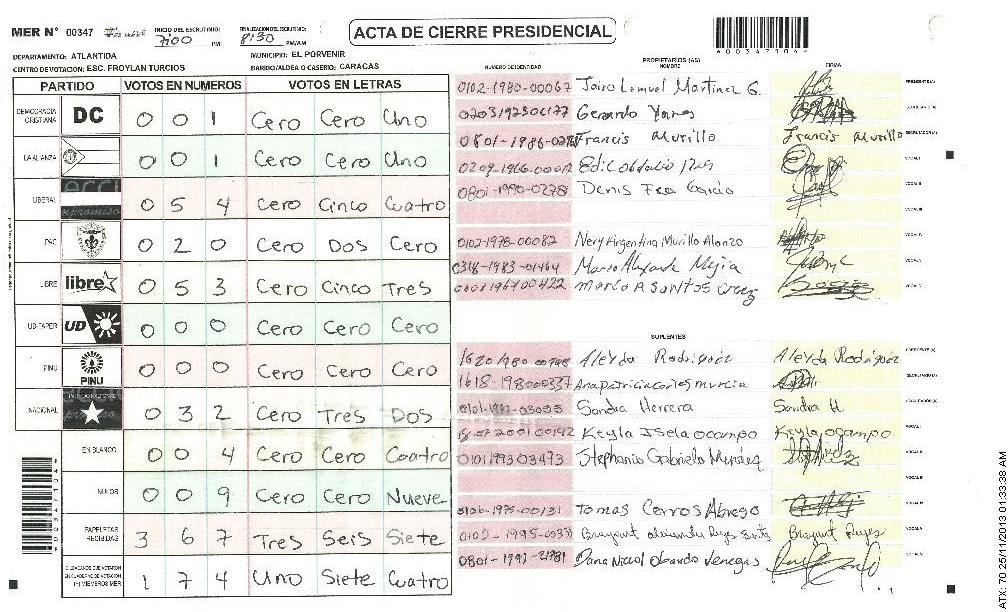 MER N° 00347 INICIO DEL ESCRUTINIO: 7:00 PM FINALIZACION DEL ESCRUTINIO: 8:30 PM/AM
ACTA DE CIERRE PRESIDENCIAL
DEPARTAMENTO: ATLANTIDA MUNICIPIO: EL PORVENIR
CENTRO DE VOTACION: ESC. FROYLAN TURCIOS BARRIO/ALDEA O CASERIO: CARACAS
PARTIDO VOTOS EN NUMEROS VOTOS EN LETRAS
DEMOCRACIA CRISTIANA DC 0 0 1 Cero Cero Uno
LA ALIANZA 0 0 1 Cero Cero Uno
LIBERAL 0 5 4 Cero Cinco Cuatro
PAC 0 2 0 Cero Dos Cero
LIBRE libre 0 5 3 Cero Cinco Tres
UD-FAPER UD 0 0 0 Cero Cero Cero
PINU PINU 0 0 0 Cero Cero Cero
NACIONAL 0 3 2 Cero Tres Dos
EN BLANCO 0 0 4 Cero Cero Cuatro
NULOS 0 0 9 Cero Cero Nueve
PAPELETAS RECIBIDAS 3 6 7 Tres Seis Siete
CIUDADANOS QUE VOTARON EN CUADERNO DE VOTACION (+) MIEMBROS MER 1 7 4 Uno Siete Cuatro
PROPIETARIOS (AS)
NUMERO DE IDENTIDAD NOMBRE FIRMA
0102-1980-00067 Jairo Lemuel Martinez G. PRESIDENTE (A)
Gerardo
0801-1986- Francis Murillo Francis Murillo ESCRUTADOR (A)
0209-1966-00012 VOCAL I
0801-1990-02781 Denis Garcia VOCAL II
VOCAL III
0102-1978-00082 Nery Argentina Murillo Alonzo VOCAL IV
0318-1983-01464 Marco Mejia VOCAL V
Marco A Santos Cruz
SUPLENTES
Aleyda Rodriguez Aleyda Rodriguez
1618-1980-00337 Ana patricia murcia SECRETARIO (A)
Sandra Herrera Sandra H.
Keyla Isela Ocampo Keyla Ocampo VOCAL I
0101199303473 Stephania Gabriela Mendez VOCAL II
VOCAL III
0106-1975-00131 Tomas Cerros Abrego
Brayant
0801-1992-21781 Obando Venegas
A003471044
ATX: 70 25/11/2013 01:33:38 AM